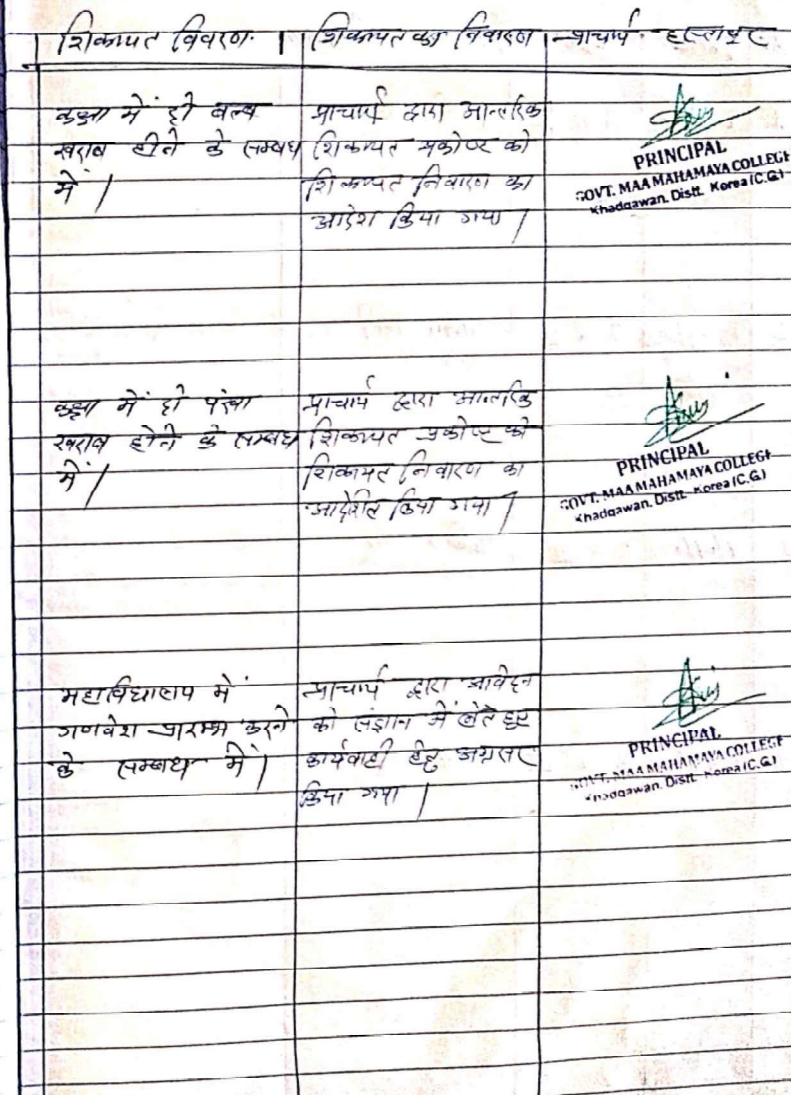 शिकायत विवरण. | शिकायत का निवारण | प्राचार्य हस्ताक्षर
कक्षा में दो बल्ब
खराब होने के सम्बध
में |
प्राचार्य द्वारा आन्तरिक
शिकायत प्रकोष्ट को
शिकायत निवारण का
आदेश किया गया |
PRINCIPAL
GOVT. MAA MAHAMAYA COLLEGE
Khadgawan, Distt. Korea (C.G.)
कक्षा में दो पंखा
खराब होने के सम्बध
में |
प्राचार्य द्वारा आन्तरिक
शिकायत प्रकोष्ट को
शिकायत निवारण का
आदेशित किया गया |
PRINCIPAL
GOVT. MAA MAHAMAYA COLLEGE
Khadgawan, Distt. Korea (C.G.)
महाविद्यालय में
गणवेश प्रारम्भ करने
के सम्बध में |
प्राचार्य द्वारा आवेदन
को संज्ञान में लेते हुए
कार्यवाही हेतु अग्रसर
किया गया |
PRINCIPAL
GOVT. MAA MAHAMAYA COLLEGE
Khadgawan, Distt. Korea (C.G.)